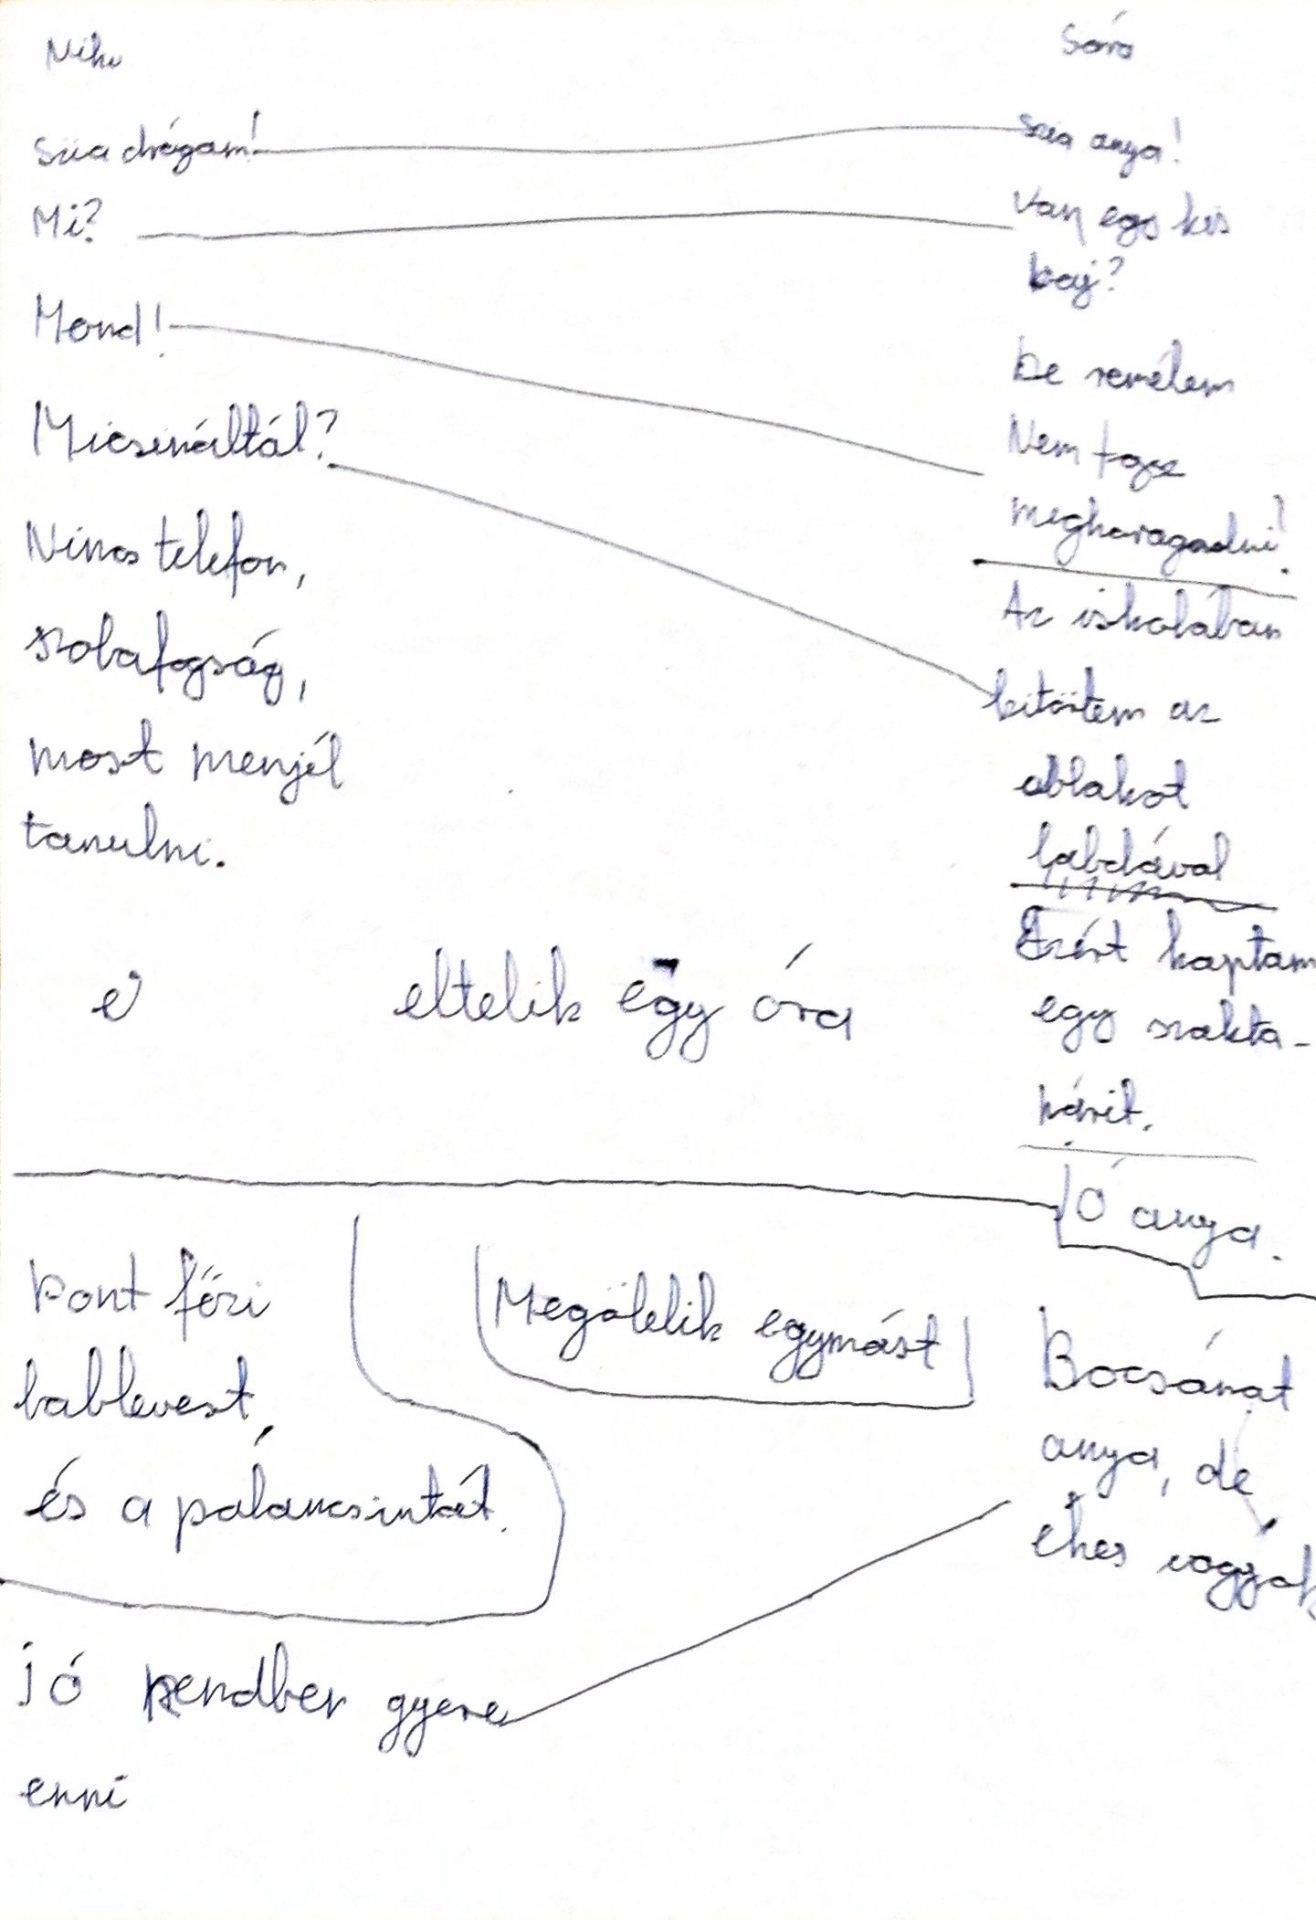 Niki
Sári
Szia drágám!
Szia anya!
Mi?
Van egy kis
baj?
Mond!
De remélem
Micsináltál?
Nem fogsz
megharagadni?
Nincs telefon,
Az iskolában
szobafogság,
kitörtem az
most menjél
ablakot
tanulni.
labdával
Ezért kaptam
e
eltelik egy óra
egy szakta-
hárit.
Jó anya.
Pont főzi
Megölelik egymást
bablevest,
Bocsánat
anya, de
és a paláncsintát.
éhes vagyok
jó rendben gyere
enni